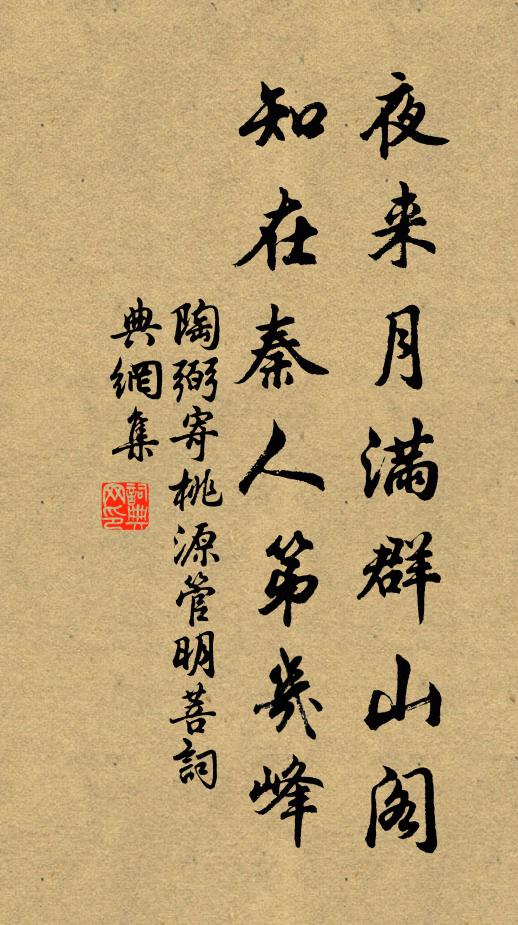 夜来月满群山阁
知在秦人第几峰
陶弼寄桃源管明菩词
典網集
詞典
网印